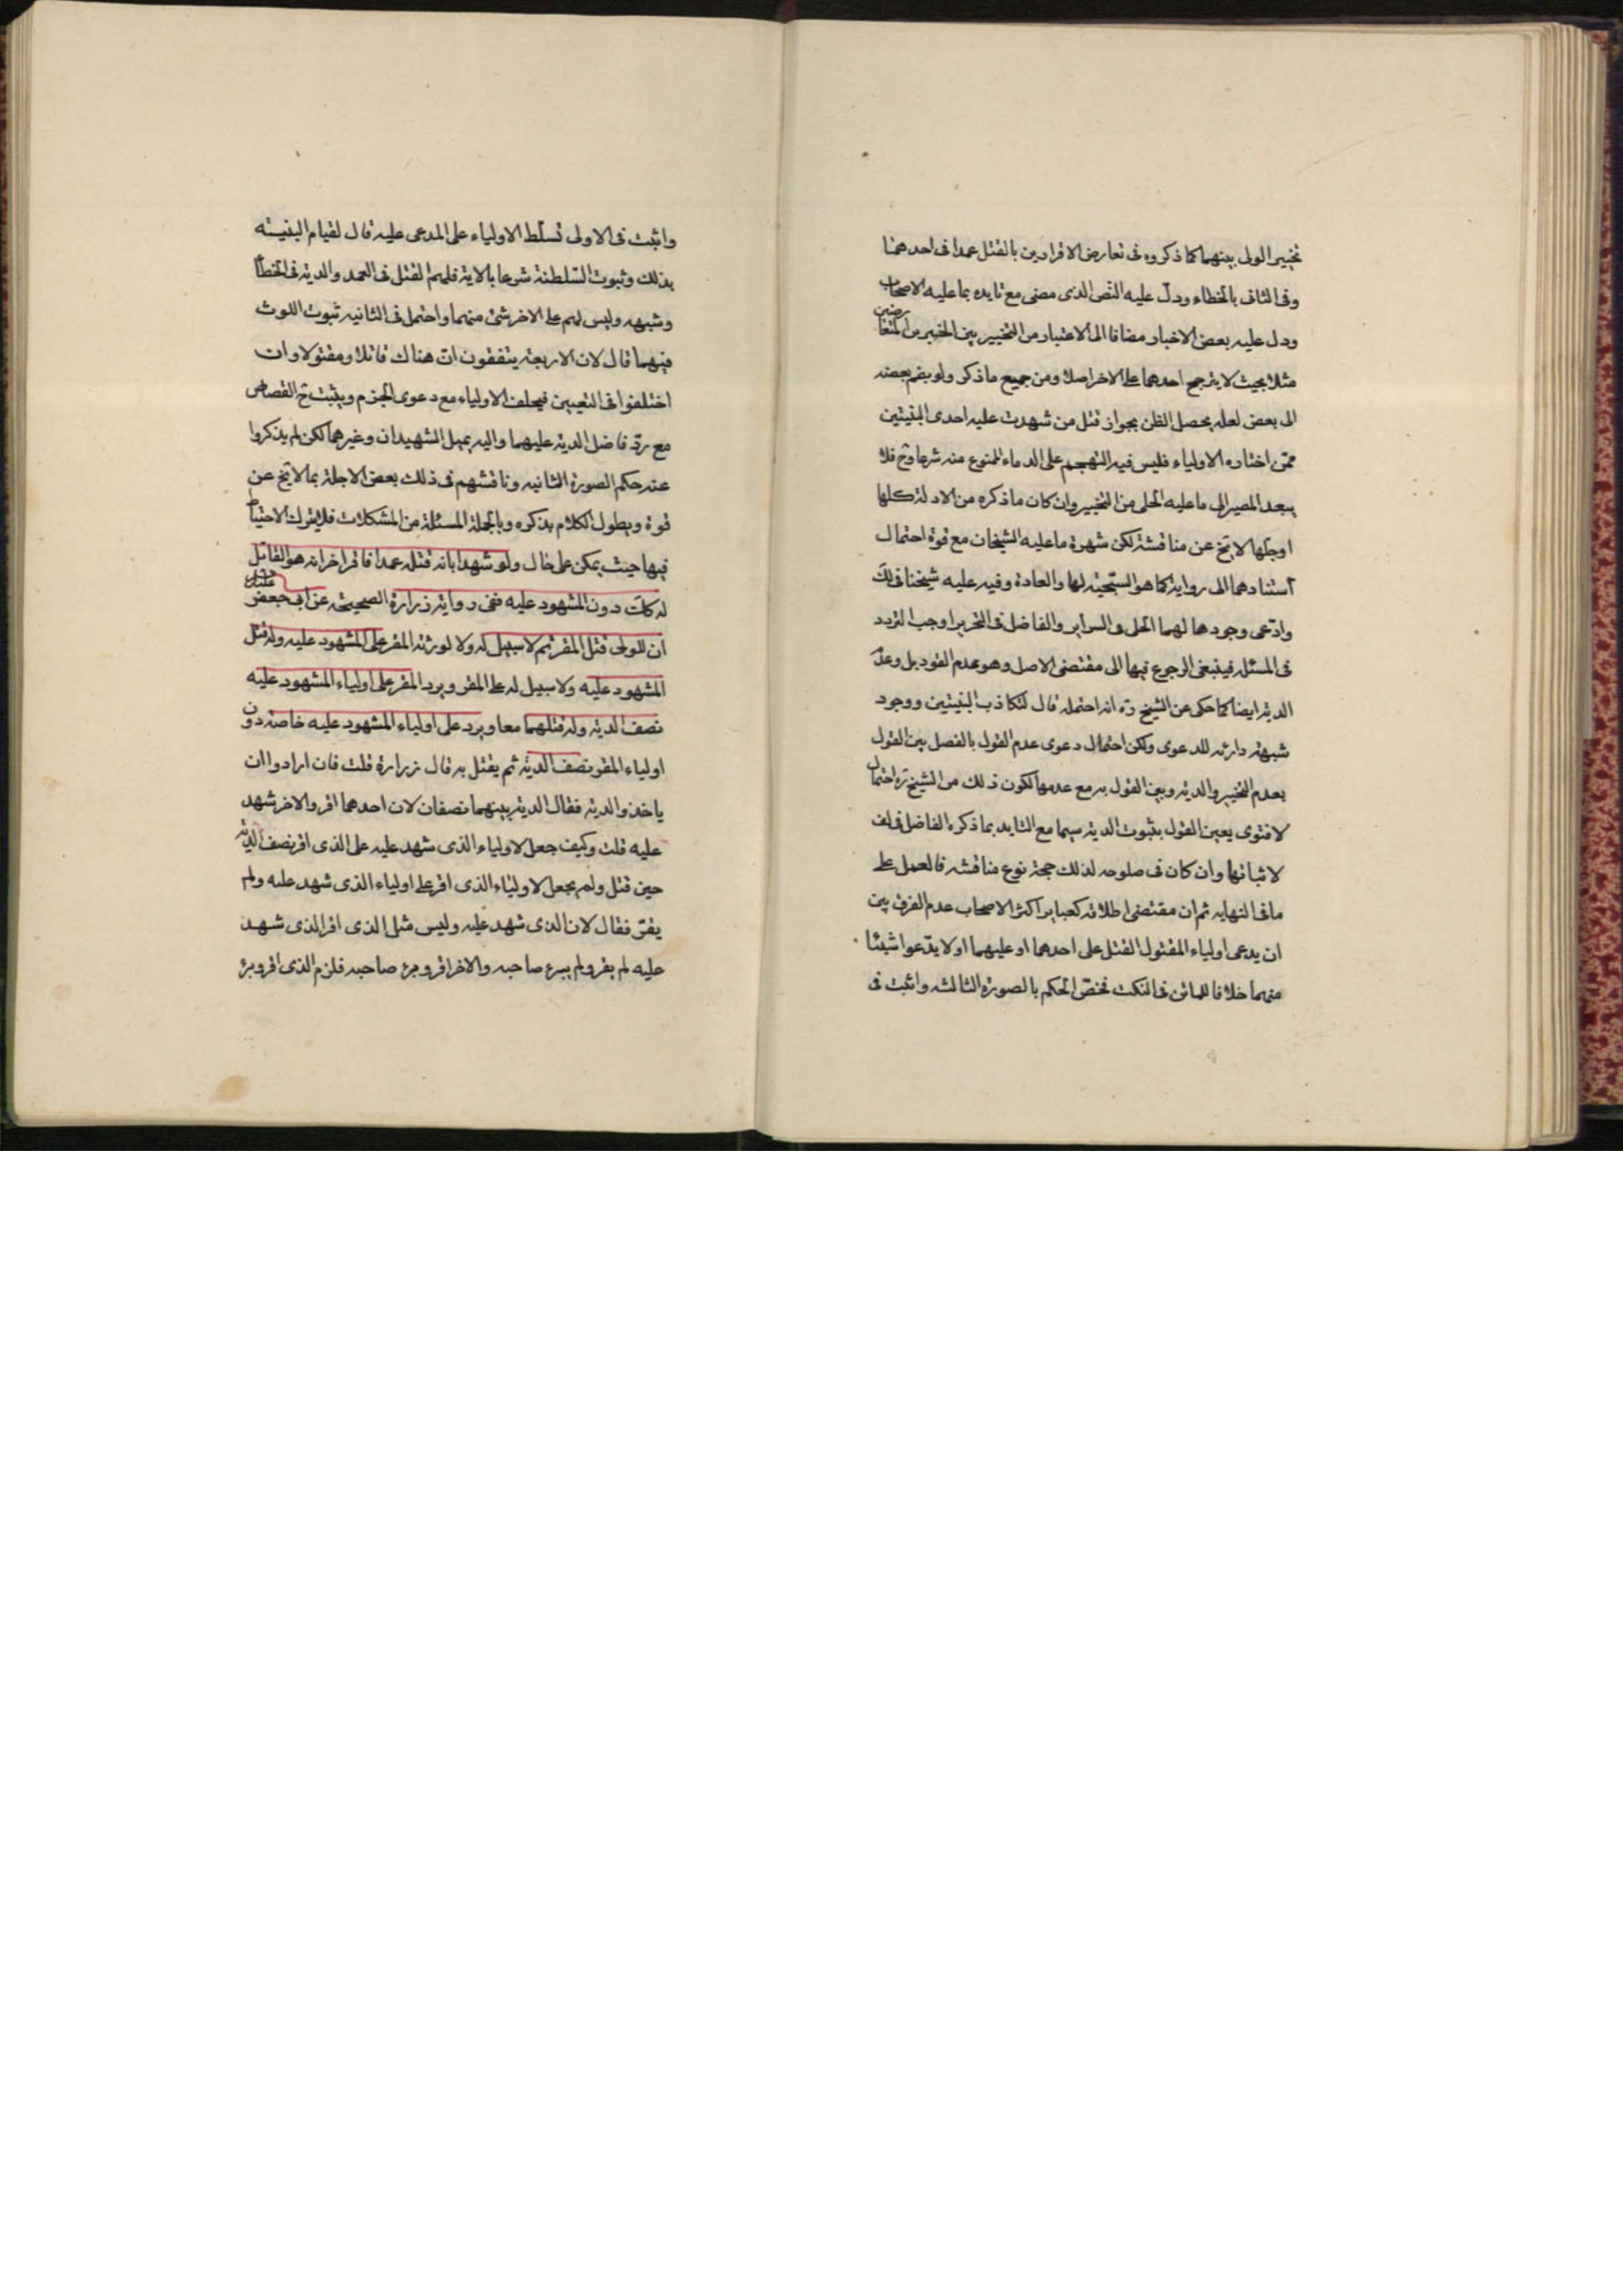 تخيير الولى بينهما كما ذكروه فى تعارض الاقرارين بالقتل عمدا فى احدهما
وفى الثانى بالخطاء ودلّ عليه النص الذى مضى مع تايده بما عليه الاصحاب
ودل عليه بعض الاخبار مضافا الى الاعتبار من التخيير بين الخبرين المتعارضين
مثلا بحيث لا يترجح احدهما على الاخر اصلا ومن جميع ما ذكر ولو بضم بعضه
الى بعض لعله يحصل الظن بجواز قتل من شهدت عليه احدى البنيتين
ممّن اختاره الاولياء فليس فيه التهجم على الدماء الممنوع منه شرعا وح فلا
يبعد المصير الى ما عليه الحلى من التخيير وان كان ما ذكره من الادلة كلها
او جلها لا يخ عن مناقشة لكن شهرة ما عليه الشيخان مع قوة احتمال
استنادهما الى رواية كما هو السجية لهما والعادة وفيه عليه شيخنا فى لك
وادعى وجودها لهما الحلى فى السراير والفاضل فى التحرير اوجب التردد
فى المسئلة فينبغى الرجوع فيها الى مقتضى الاصل وهو عدم القود بل وعدم
الدية ايضا كما حكى عن الشيخ ره انه احتمله قال لتكاذب البنيتين ووجود
شبهة دارئه للدعوى ولكن احتمال دعوى عدم القول بالفصل بين القول
بعدم التخيير والدية وبين القول به مع عدمها لكون ذلك من الشيخ ره احتمال
لا فتوى يعين القول بثبوت الدية سيما مع التايد بما ذكره الفاضل فى لف
لاثباتها وان كان فى صلوحه لذلك حجة نوع مناقشه فالعمل على
ما فى النهايه ثم ان مقتضى اطلاقه كعباير اكثر الاصحاب عدم الفرق بين
ان يدعى اولياء المقتول القتل على احدهما او عليهما او لا يدّعوا شيئا
منهما خلافا للماتن فى النكت فخصّ الحكم بالصورة الثالثه واثبت فى
واثبت فى الاولى تسلّط الاولياء على المدعى عليه قال لقيام البنيته
بذلك وثبوت السّلطنة شرعا بالاية فلهم القتل فى العمد والدية فى الخطأ
وشبهه وليس لهم على الاخر شئ منهما واحتمل فى الثانيه ثبوت اللوث
فيهما قال لان الاربعة يتفقون انّ هناك قاتلا ومقتولا وان
اختلفوا فى التعيين فيحلف الاولياء مع دعوى الجزم ويثبت ح القصاص
مع ردّ فاضل الدية عليهما واليه يميل الشهيدان وغيرهما لكن لم يذكروا
عنه حكم الصورة الثانيه وناقشهم فى ذلك بعض الاجلة بما لا يخ عن
قوة ويطول الكلام بذكره وبالجملة المسئلة من المشكلات فلا يترك الاحتياط
فيها حيث يمكن على حال ولو شهدا بانه قتله عمدا فاقر اخر انه هو القاتل
له كانت دون المشهود عليه ففى رواية زرارة الصحيحة عن ابى جعفر
ان للولى قتل المقر ثم لا سبيل له ولا لورثة المقر على المشهود عليه وله قتل
المشهود عليه ولا سبيل له على المقر ويرد المقر على اولياء المشهود عليه
نصف الدية وله قتلهما معا ويرد على اولياء المشهود عليه خاصة دون
اولياء المقر نصف الدية ثم يقتل به قال زرارة قلت فان ارادوا ان
ياخذوا الدية فقال الدية بينهما نصفان لان احدهما اقر والاخر شهد
عليه قلت وكيف جعل لاولياء الذى شهد عليه على الذى اقر نصف الدية
حين قتل ولم يجعل لاولياء الذى اقر على اولياء الذى شهد عليه ولم
يقرّ فقال لان الذى شهد عليه وليس مثل الذى اقر الذى شهد
عليه لم يقر ولم يبرء صاحبه والاخر اقر وبرء صاحبه فلزم الذى اقر وبرء